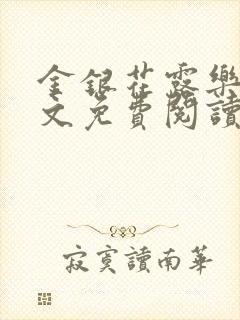 金銀花露樂
文免費閱讀
寂寞讀南華